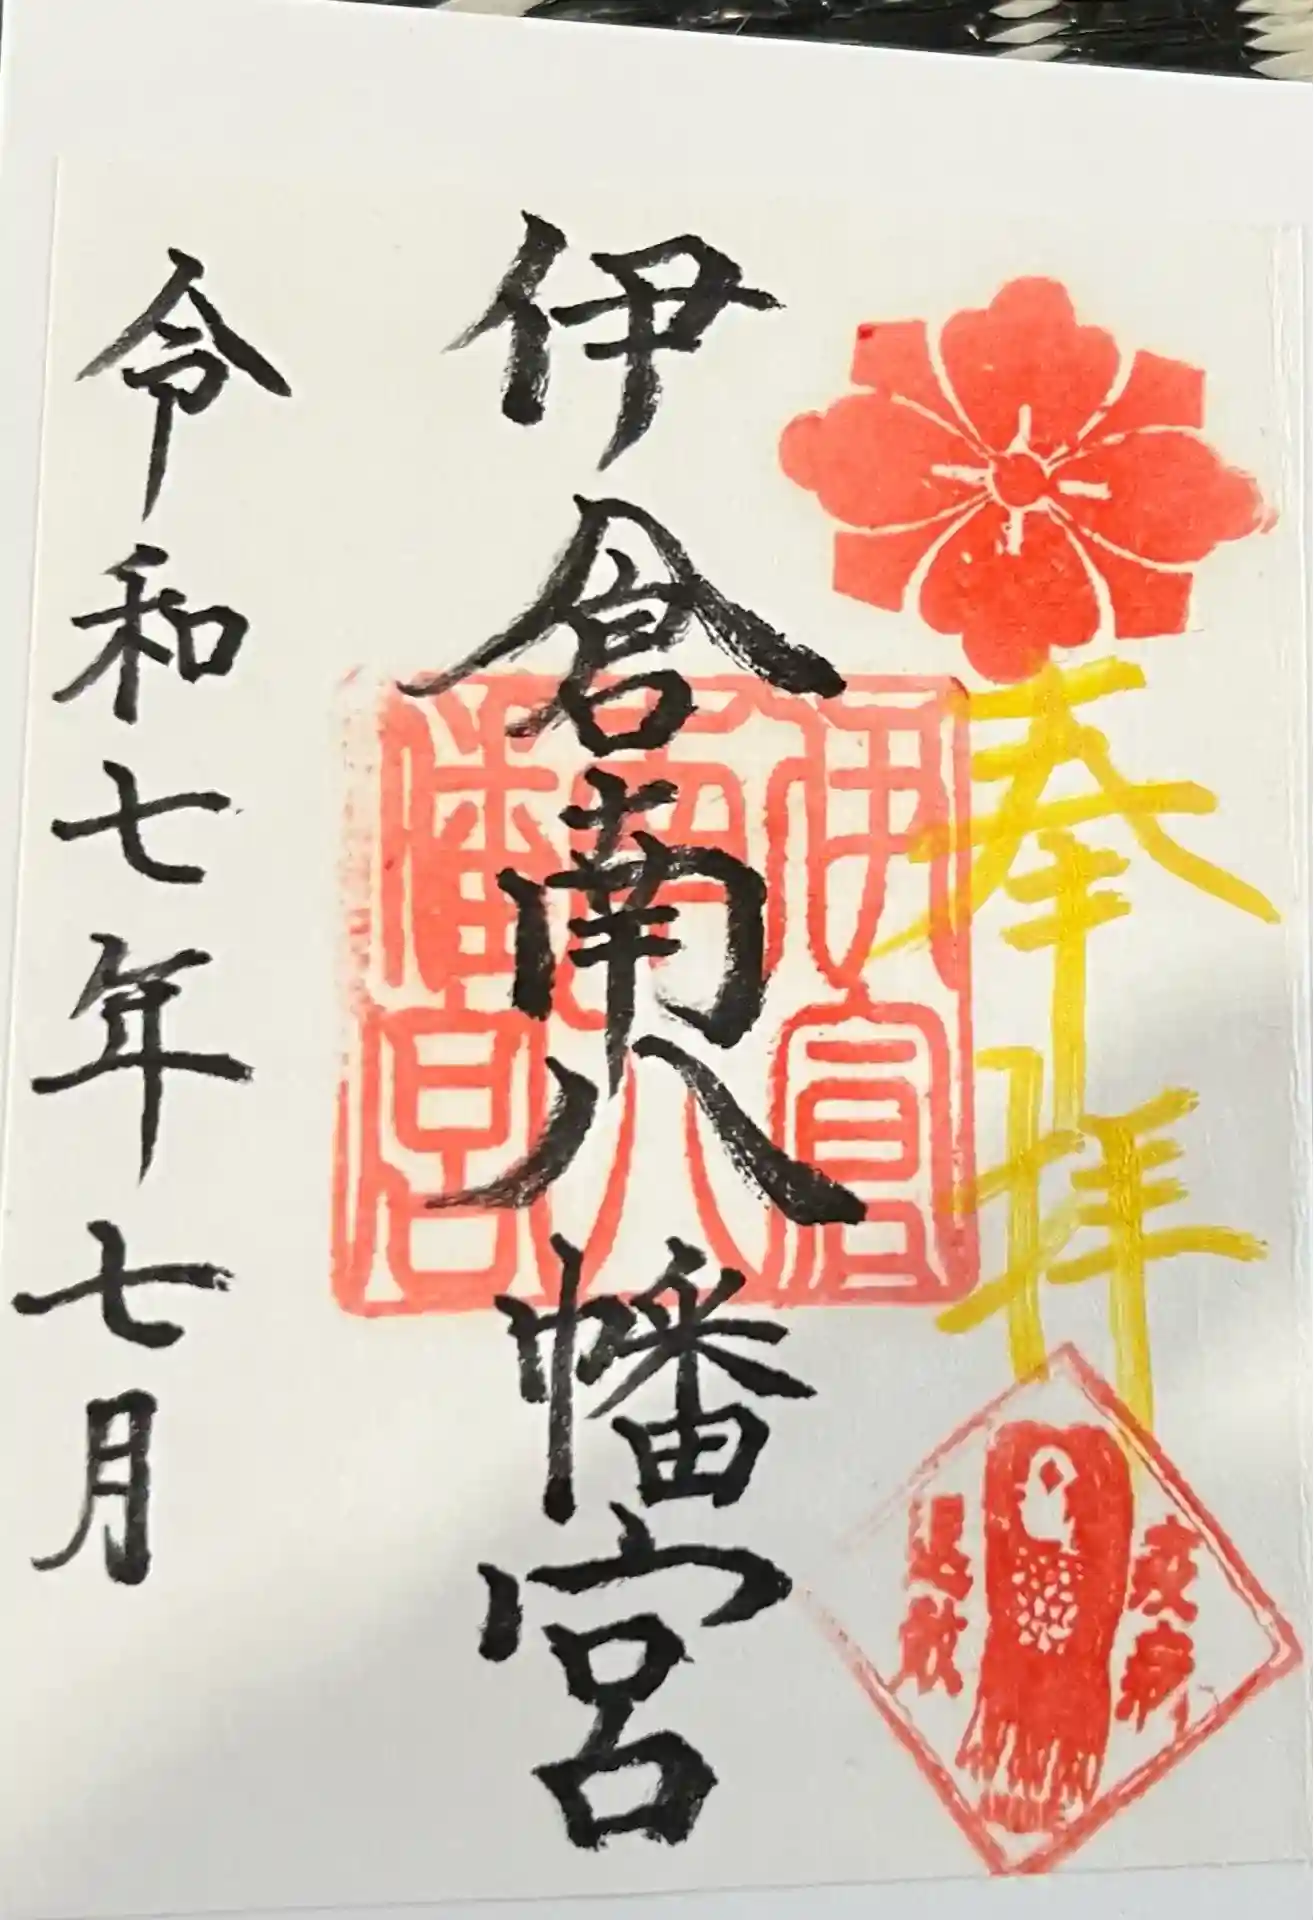 奉拝
疫病
退散
伊倉南八幡宮
伊倉南八幡宮
令和七年七月